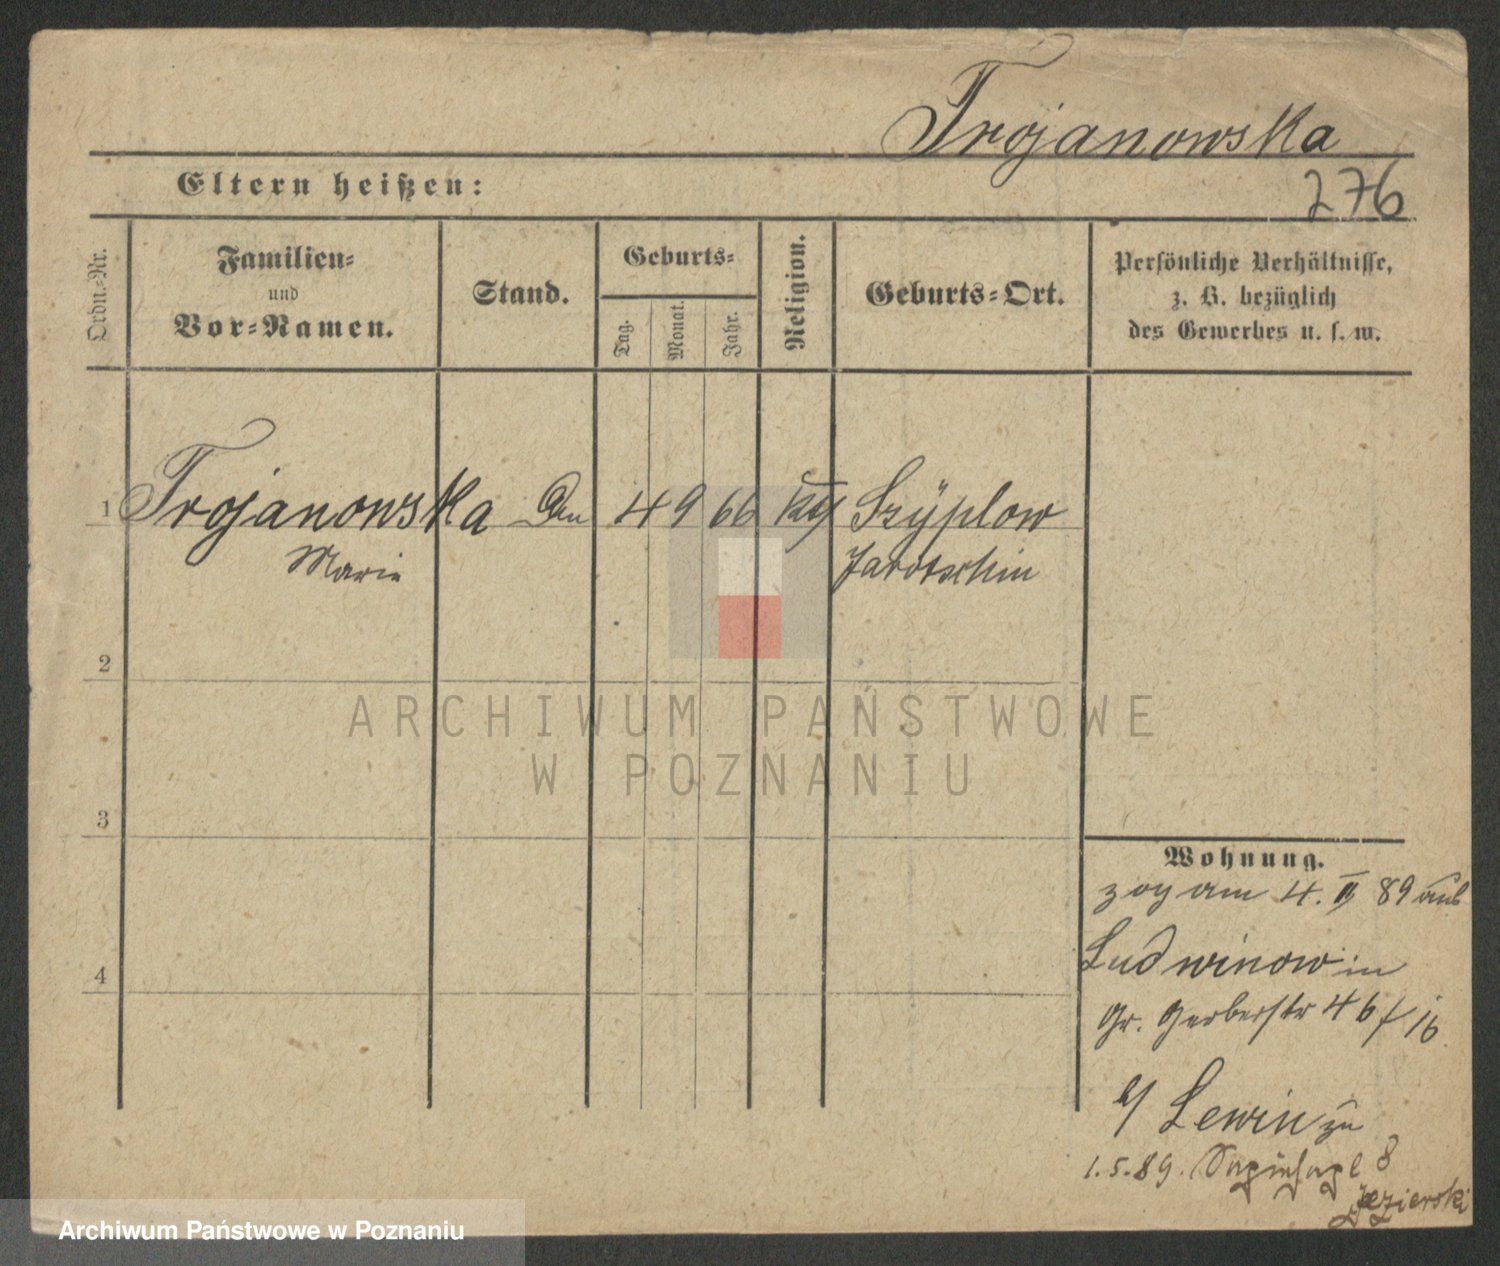 Trojanowska
Eltern heißen:
276
Ordn.-Nr.
Familien-
und
Vor-Namen.
Stand.
Geburts-
Tag.
Monat.
Jahr.
Religion.
Geburts-Ort.
Persönliche Verhältnisse,
z. B. bezüglich
des Gewerbes u. s. w.
1 Trojanowska 4 9 66 Szÿplow
Marie Jarotschin
2
ARCHIWUM PAŃSTWOWE
W POZNANIU
3
Wohnung.
zog am 4. II 89 aus
Ludwinow in
4
Gr. Gerberstr 46
b/ Lewin zu
1.5.89. 8
Jezierski
Archiwum Państwowe w Poznaniu